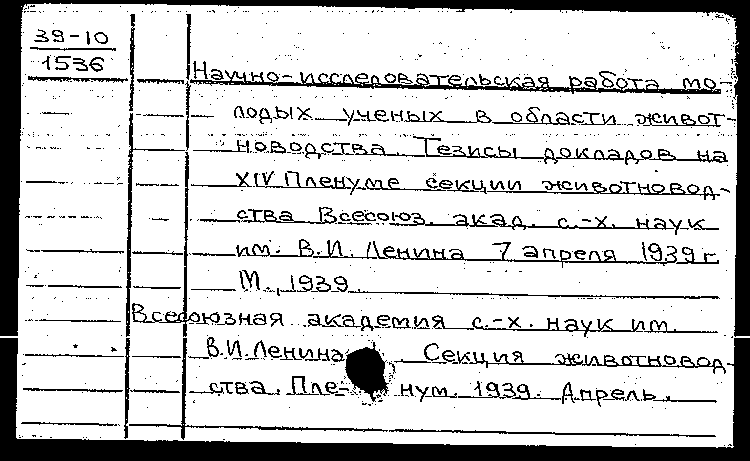 39-10
1536
Научно-исследовательская работа мо-
лодых ученых в области живот-
новодства. Тезисы докладов на
XIV Пленуме секции животновод-
ства Всесоюз. акад. с.-х. наук
им. В.И. Ленина 7 апреля 1939 г.
М., 1939.
Всесоюзная академия с.-х. наук им.
В.И. Ленина. Секция животновод-
ства. Пленум. 1939. Апрель.